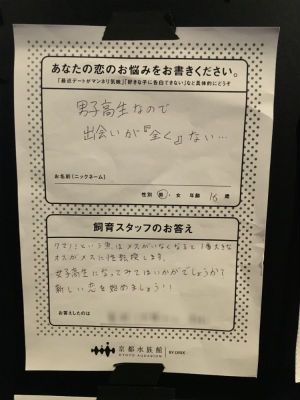 あなたの恋のお悩みをお書きください。
「最近デートがマンネリ気味」「好きな子に告白できない」など具体的にどうぞ
男子高生なので
出会いが『全く』ない…
お名前(ニックネーム)
性別 男・女 年齢 16 歳
飼育スタッフのお答え
クマノミという魚はメスがいなくなると1番大きな
オスがメスに性転換します。
女子高生になってみてはいかがでしょうか?
新しい恋を始めましょう!!
お答えしたのは
京都水族館
KYOTO AQUARIUM
BY ORIX